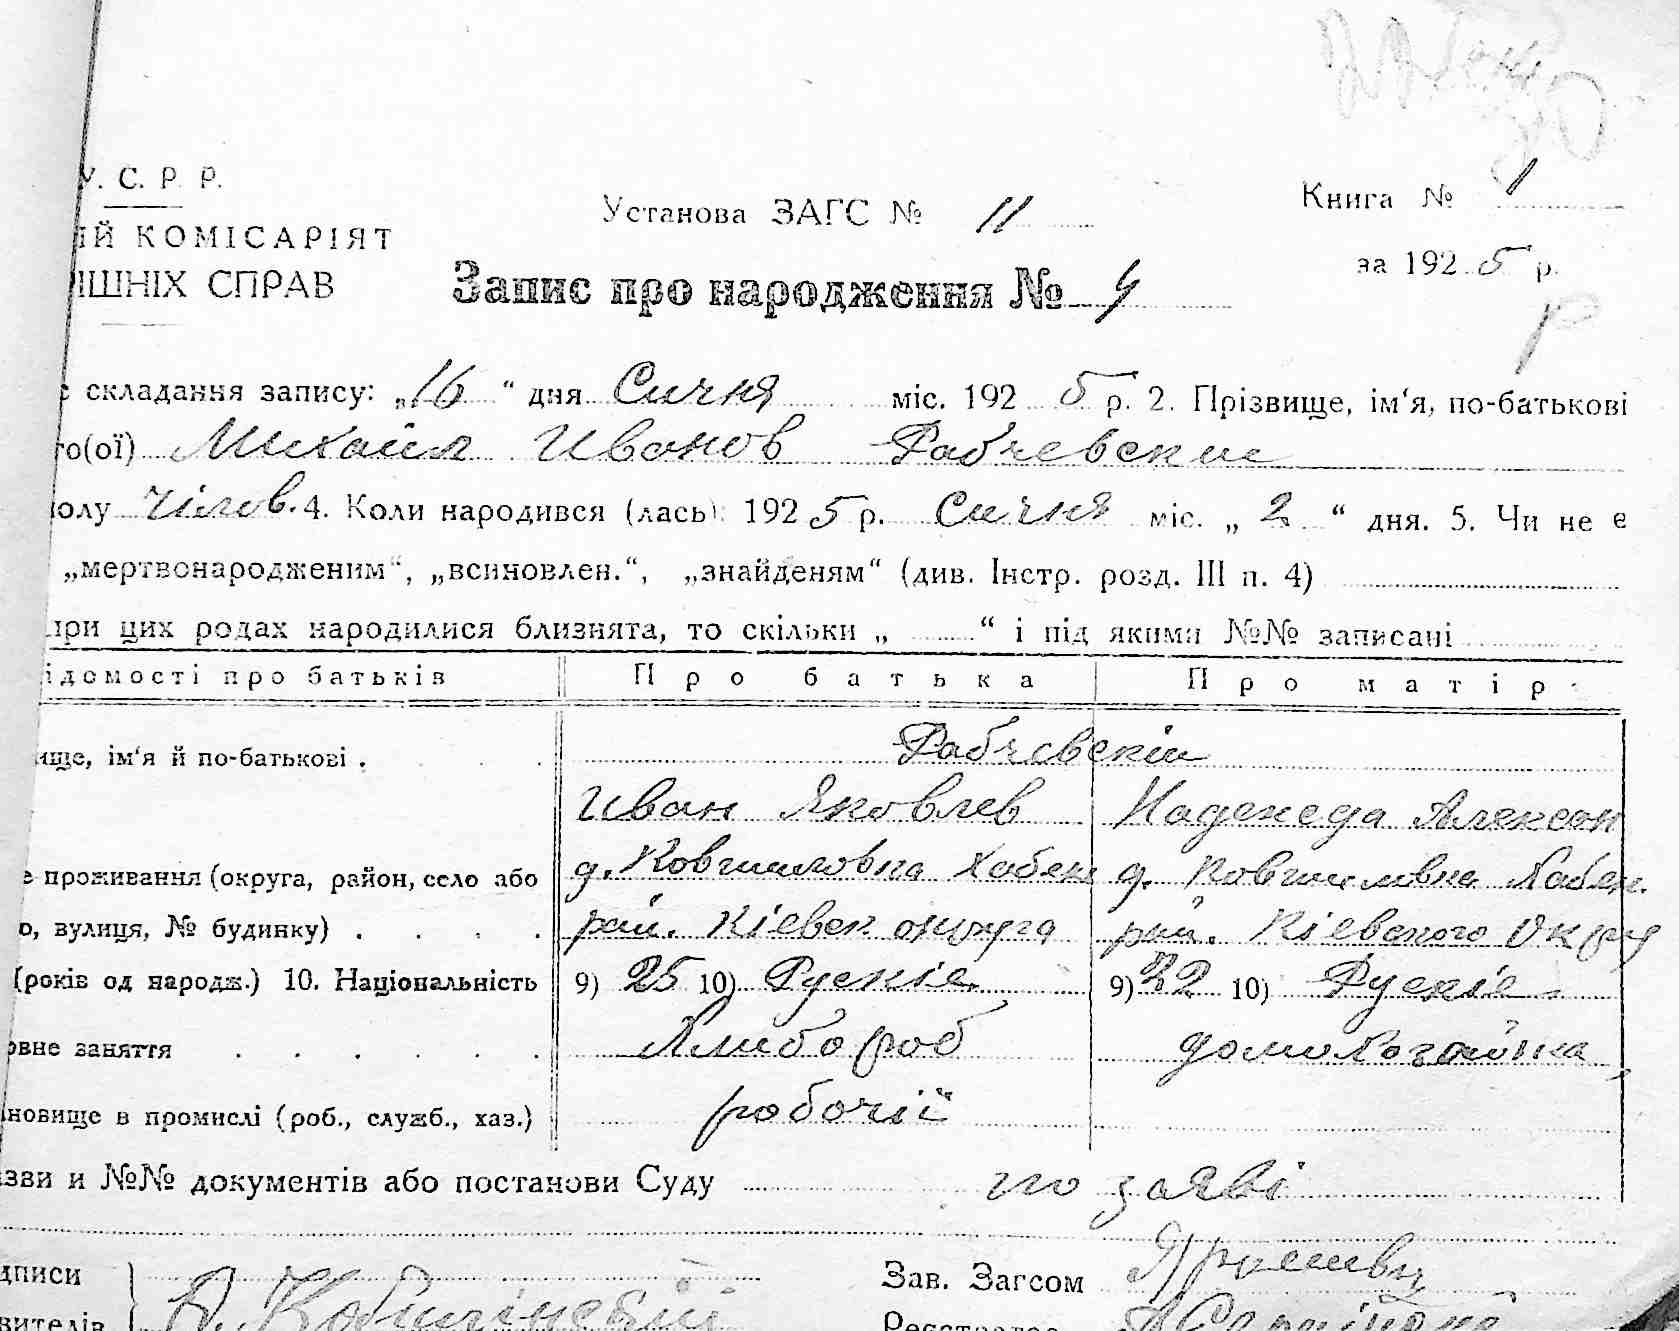 У. С. Р. Р.
ИЙ КОМІСАРІЯТ
ІШНІХ СПРАВ
Установа ЗАГС № 11
Книга № 1
за 1925 р.
Запис про народження № 4
с складання запису: „16“ дня Сичня міс. 1925 р. 2. Прізвище, ім‘я, по-батькові
го(ої) Михаил Иванов Рабчевские
полу чілов. 4. Коли народився (лась) 1925 р. Сичня міс. „2“ дня. 5. Чи не є
„мертвонародженим“, „всиновлен.“, „знайденям“ (див. Інстр. розд. III п. 4)
при цих родах народилися близнята, то скільки „ “ і під якими №№ записані
ідомості про батьків Про батька Про матір
ище, ім‘я й по-батькові . Рабчевскіи
Иван Яковлев Надежеда Алексан
е проживання (округа, район, село або д. Ковшиловка Хабен д. Ковшиловка Хабен.
о, вулиця, № будинку) . . . . рай. Кіевск округа рай. Кіевского Округ
(років од народж.) 10. Національність 9) 25 10) Рускіе 9) 22 10) Рускіе
овне заняття . . . . . . Хлибороб домохозяйка
ановище в промислі (роб., служб., хаз.) робочії
азви и №№ документів або постанови Суду по заяві
дписи
Зав. Загсом
вителів
Реєстрував